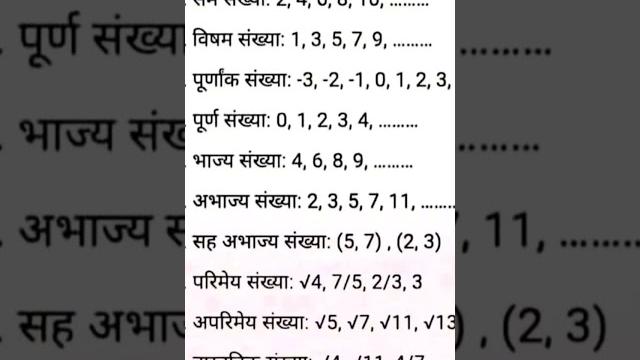 सम संख्या: 2, 4, 6, 8, 10, .........
विषम संख्या: 1, 3, 5, 7, 9, .........
पूर्णांक संख्या: -3, -2, -1, 0, 1, 2, 3,
पूर्ण संख्या: 0, 1, 2, 3, 4, .........
भाज्य संख्या: 4, 6, 8, 9, .........
अभाज्य संख्या: 2, 3, 5, 7, 11, ........
सह अभाज्य संख्या: (5, 7) , (2, 3)
परिमेय संख्या: √4, 7/5, 2/3, 3
अपरिमेय संख्या: √5, √7, √11, √13
वास्तविक संख्या: √4, √11, 4/7